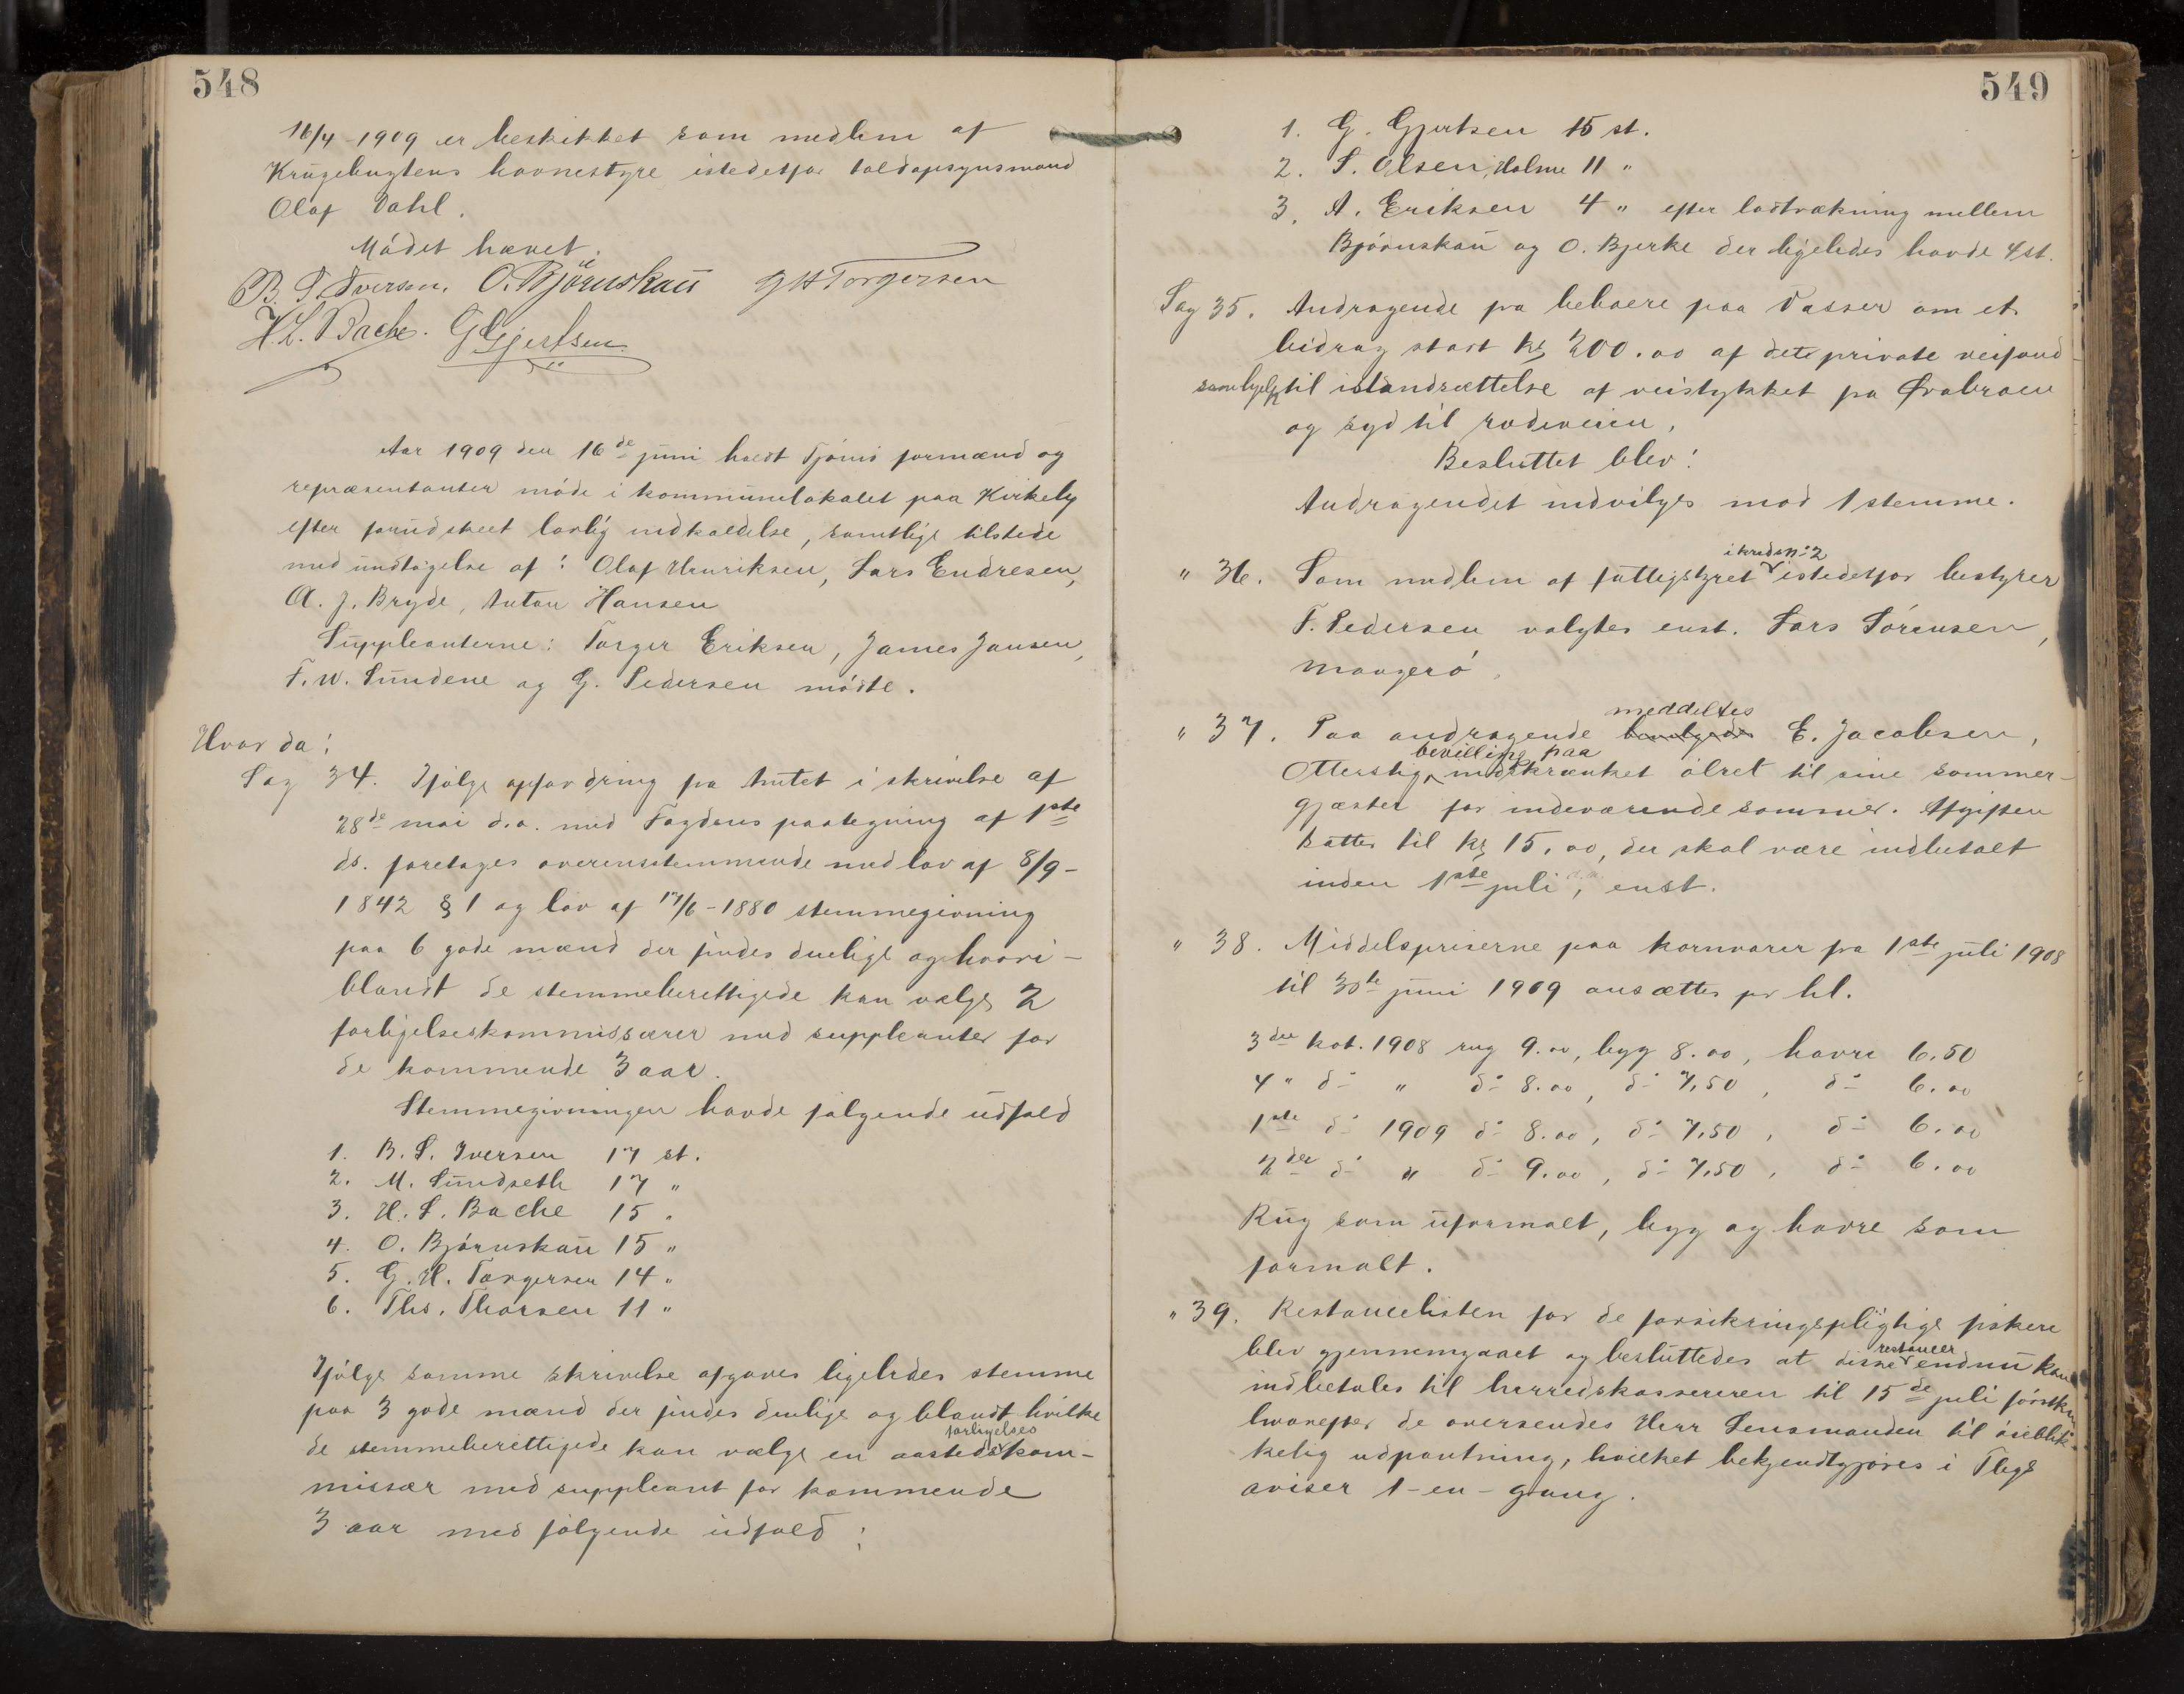 548
16/4-1909 er beskikket som medlem af
Krugebugtens havnestyre istedetfor toldopsynsmand
Olaf Dahl.
Mödet hævet.
B. S. Iversen. O. Björnskau G H Torgersen
H. L. Bache. G Gjertsen
Aar 1909 den 16de juni holdt Tjömö formænd og
repræsentanter möde i kommunelokalet paa Kirkeby
efter forudskeet lovlig indkaldelse, samtlige tilstede
med undtagelse af: Olaf Henriksen, Lars Endresen,
A. J. Bryde, Anton Hansen
Suppleanterne: Torger Eriksen, James Jansen,
F. W. Sundene og G. Pedersen mödte.
Hvor da:
Sag 34. Ifölge opfordring fra Amtet i skrivelse af
28de mai d.a. med Fogdens paategning af 1ste
ds. foretages overensstemmende med lov af 8/9-
1842 § 1 og lov af 17/6-1880 stemmegivning
paa 6 gode mænd der findes duelige og hvori-
blandt de stemmeberettigede kan vælge 2
forligelseskommissærer med suppleanter for
de kommende 3 aar.
Stemmegivningen havde fölgende udfald
1. B. S. Iversen 17 st.
2. M. Sundseth 17 "
3. H. L. Bache 15 "
4. O. Björnskau 15 "
5. G. H. Torgersen 14 "
6. Ths. Thorsen 11 "
Ifölge samme skrivelse afgaves ligeledes stemme
paa 3 gode mænd der findes duelige og blandt hvilke
forligelses
de stemmeberettigede kan vælge en aastedskom-
missær med suppleant for kommende
3 aar med fölgende udfald:
549
1. G. Gjertsen 15 st.
2. S. Olsen, Holme 11 "
3. A. Eriksen 4 " efter lodtrækning mellem
Björnskau og O. Bjerke der ligeledes havde 4 st.
Sag 35. Andragende fra beboere paa Vasser om et
bidrag stort kr 200.00 af det private veifond
som hjelp til istandsættelse af veistykket fra Øvabroen
og syd til rodeveien.
Besluttet blev:
Andragendet indvilges mod 1 stemme.
i kreds No 2
" 36. Som medlem af fattigstyret istedetfor bestyrer
F. Pedersen valgtes enst. Lars Sörensen,
Maagerö.
meddeltes
" 37. Paa andragende bevilgedes E. Jacobsen,
bevilling paa
Otterstig, indskrænket ölret til sine sommer-
gjæster for indeværende sommer. Afgiften
sattes til kr 15.00, der skal være indbetalt
inden 1ste juli d.a., enst.
" 38. Middelspriserne paa kornvarer fra 1ste juli 1908
til 30te juni 1909 ansættes pr hl.
3die kvt. 1908 rug 9.00, byg 8.00, havre 6.50
4 " do " do 8.00, do 7.50, do 6.00
1ste do 1909 do 8.00, do 7.50, do 6.00
2der do " do 9.00, do 7.50, do 6.00
Rug som uformalt, byg og havre som
formalt.
" 39. Restancelisten for de forsikringspligtige fiskere
restancer
blev gjennemgaaet og besluttedes at disse endnu kan
indbetales til herredskassereren til 15de juli förstk
hvorefter de oversendes Herr Lensmanden til öieblik-
kelig udpantning, hvilket bekjendtgjöres i Tbgs
aviser 1-en-gang.